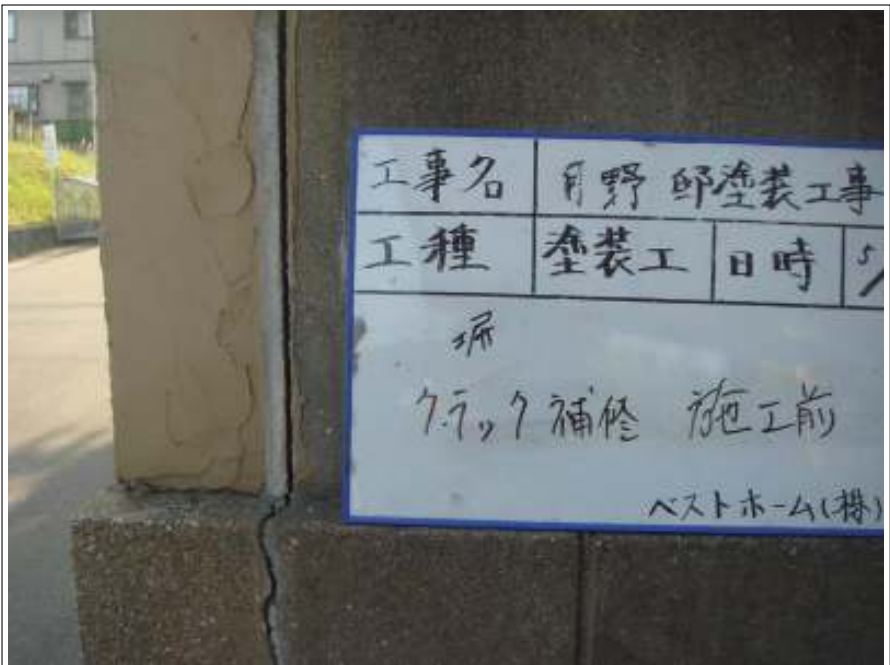 工事名 月野 邸塗装工事
工種 塗装工 日時 5/
塀
クラック補修 施工前
ベストホーム(株)